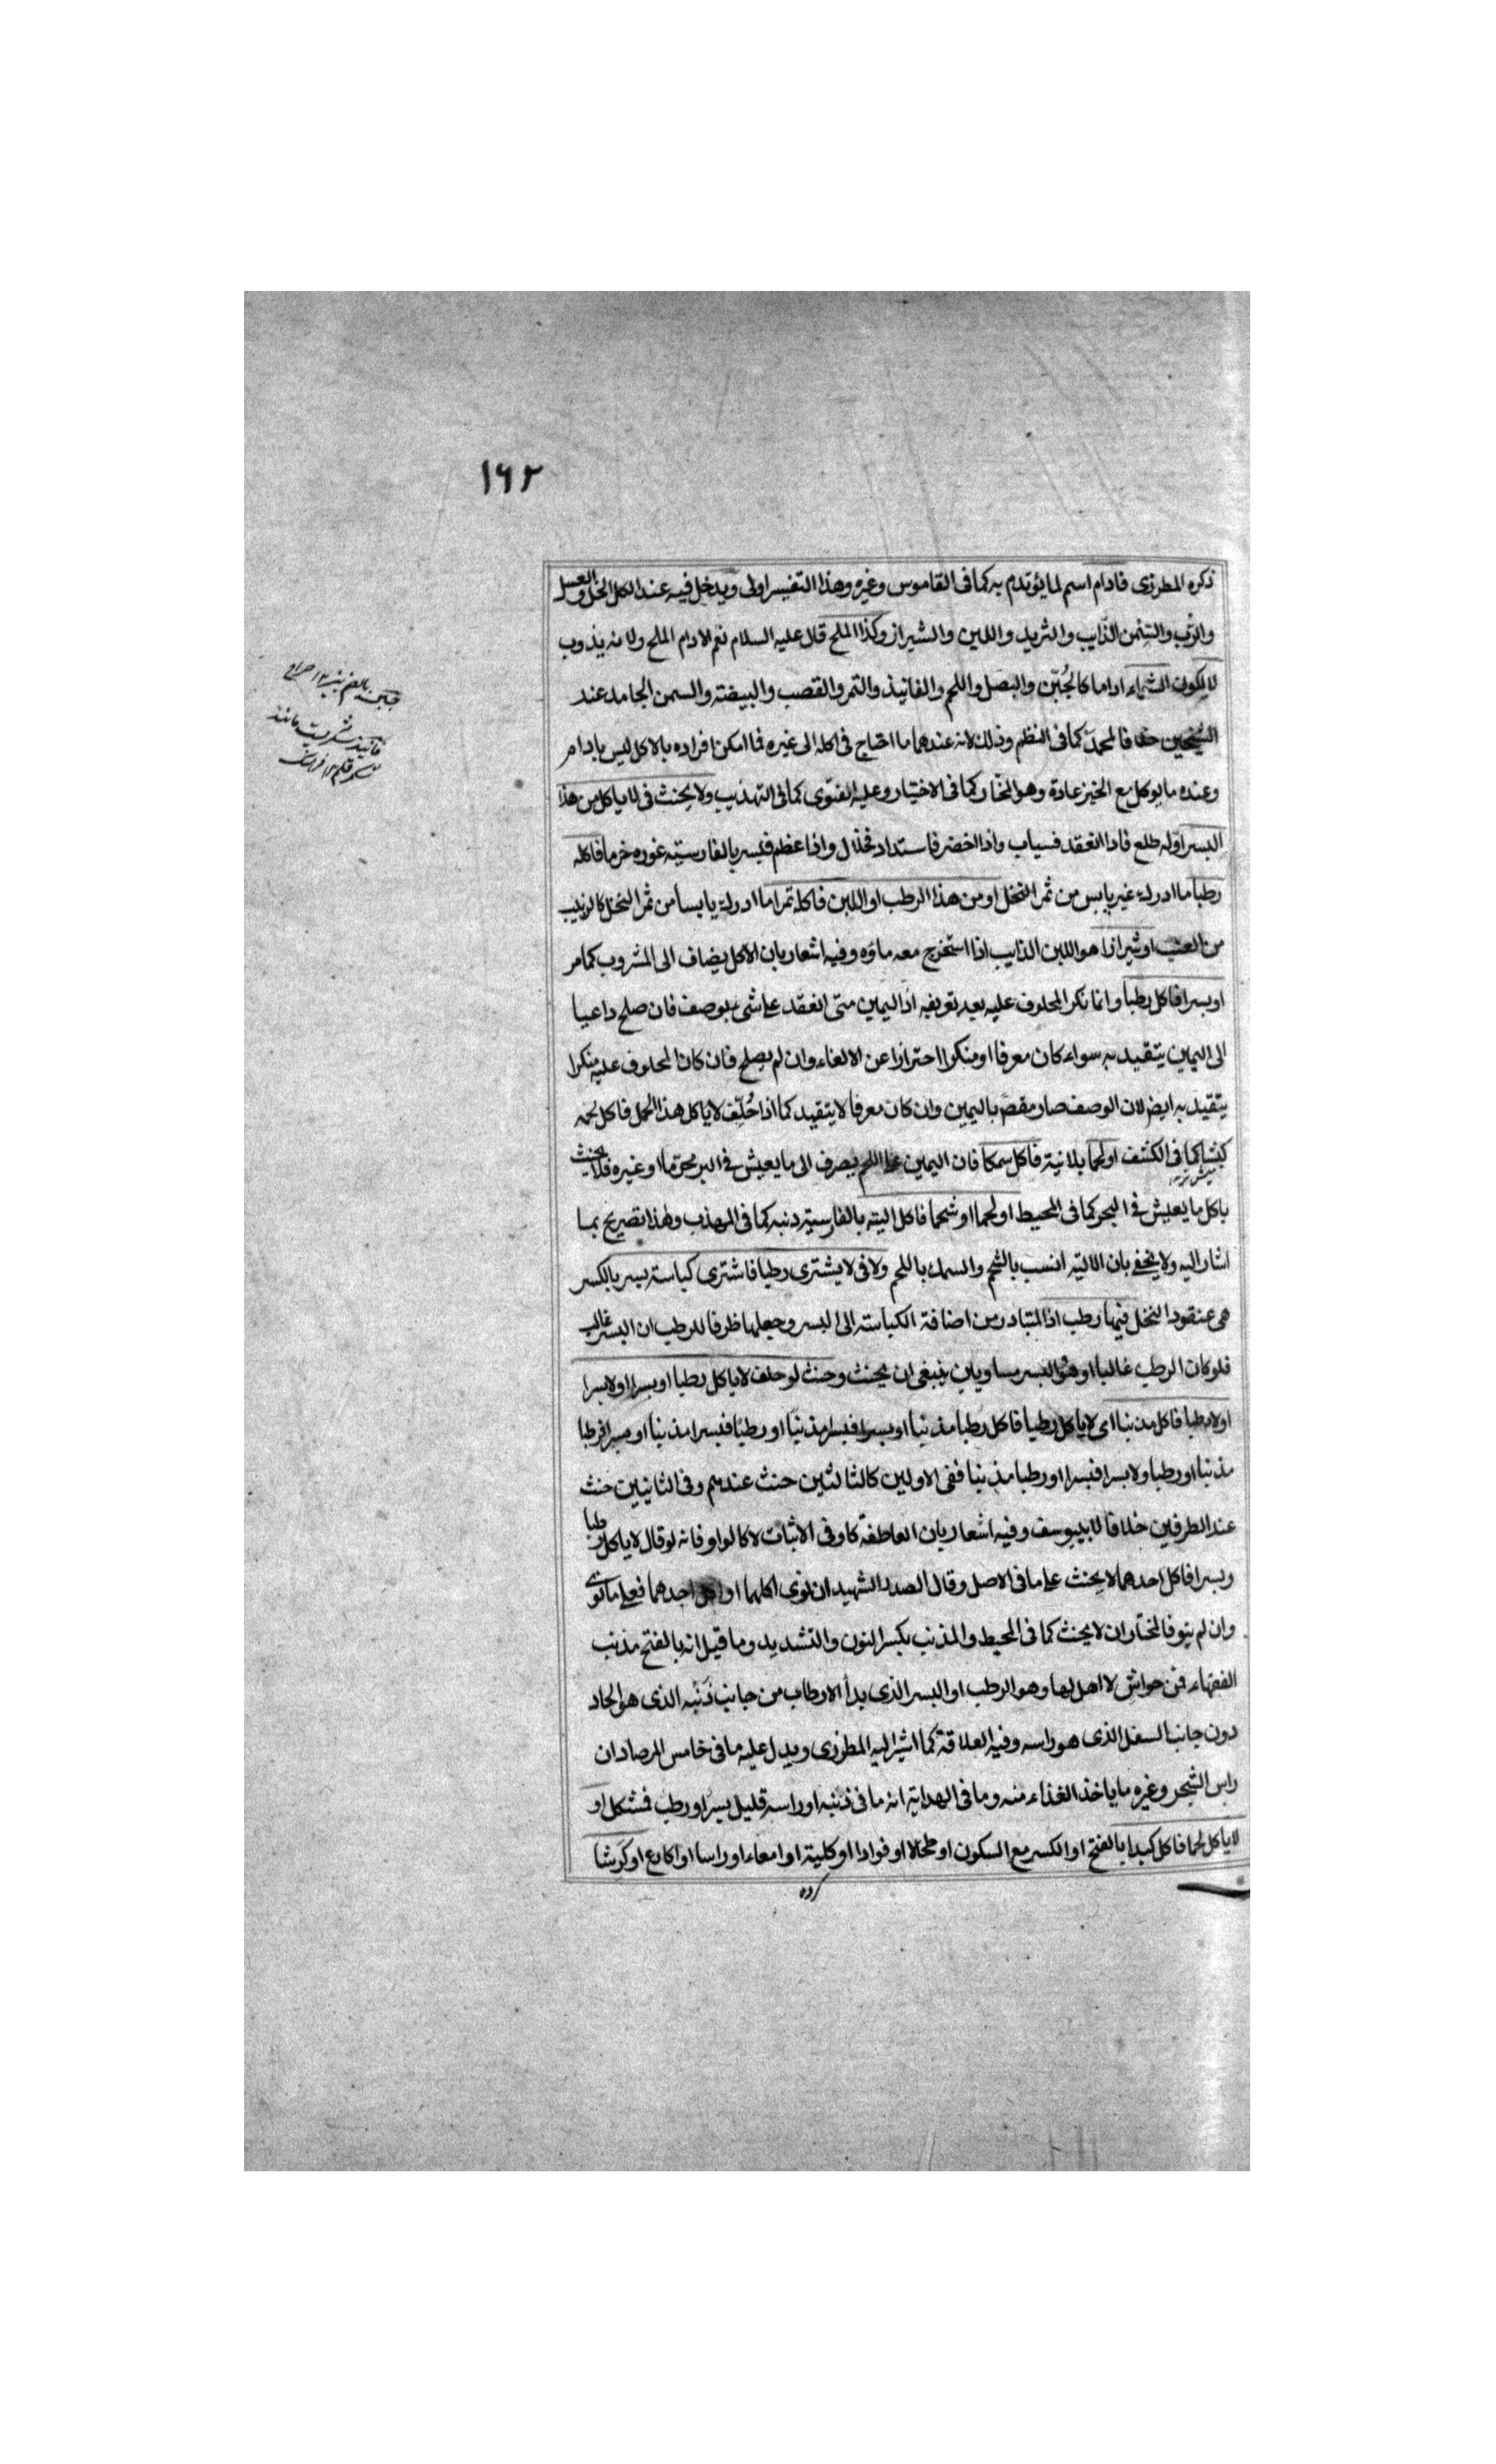 ١٦٢
ذكره المطرزى فادام اسم لما يؤتدم به كما فى القاموس وغيره وهذا التفسير اولى ويدخل فيه عند الكل الخل والعسل
والرُّب والسمن الذايب والثريد واللبن والشيراز وكذا الملح قال عليه السلام نعم الادام الملح ولانه يذوب
لا يكون الشواء اداما كالجُبّن والبصل واللحم والفانيذ والتمر والقصب والبيضة والسمن الجامد عند
الشيخين خلافا لمحمد كما فى النظم وذلك لانه عندهما ما احتاج فى اكله الى غيره فما امكن افراده بالاكل ليس بادام
وعنده ما يوكل مع الخبز عادة وهو المختار كما فى الاختيار وعليه الفتوى كما فى التهذيب ولا يحنث فى لا ياكل من هذا
البسر اوله طلع فاذا انعقد فسياب واذا اخضر فاستداد فخلال واذا عظم فبسر بالفارسيته غوره خرما فاكله
رطبا ما ادرك غير يابس من ثمر النخل او من هذا الرطب او اللبن فاكله تمرا ما ادرك يابسا من ثمر النخل كالزبيب
من العنب او شيرازا هو اللبن الذايب اذا استخرج معه ماؤه وفيه اشعار بان الاكل يضاف الى المشروب كما مر
او بسرا فاكل رطبا وانما نكر المحلوف عليه بعد تعريفه اذ اليمين متى انعقد على شىء بوصف فان صلح داعيا
الى اليمين يتقيد به سواء كان معرفا او منكرا احترازا عن الالغاء وان لم يصلح فان كان المحلوف عليه منكرا
يتقيد به ايضا لان الوصف صار مقصّ باليمين وان كان معرفا لا يتقيد كما اذا حُلّف لا ياكل هذا الحمل فاكل لحمه
كبشا كما فى الكشف او لحما بلا نية فاكل سمكا فان اليمين على اللحم يصرف الى ما يعيش فى البر محرّما او غيره فلا يحنث
باكل ما يعيش فى البحر كما فى المحيط او لحما او شحما فاكل الية بالفارسية دنبه كما فى المهذب وهذا تصريح بما
اشار اليه ولا يخفى بان الالية انسب بالشحم والسمك باللحم ولا فى لا يشترى رطبا فاشترى كباسة بسر بالكسر
هى عنقود النخل فيها رطب اذ المتبادر من اضافة الكباسة الى البسر وجعلها ظرفا للرطب ان البسر غالب
فلو كان الرطب غالبا او هو والبسر مساويان ينبغى ان يحنث وحنث لو حلف لا ياكل رطبا او بسرا او لا بسرا
او لا رطبا فاكل مذنبا اى لا ياكل رطبا فاكل رطبا مذنبا او بسرا فبسرا مذنبا او رطبا فبسرا مذنبا او بسرا فرطبا
مذنبا او رطبا ولا بسرا فبسرا او رطبا مذنبا ففى الاولين كالثالثين حنث عندهم وفى الثانيين حنث
عند الطرفين خلافا لابييوسف وفيه اشعار بان العاطفة كاو فى الاثبات لا كالواو فانه لو قال لا ياكل رطبا
وبسرا فاكل احدهما لا يحنث على ما فى الاصل وقال الصدر الشهيد ان نوى اكلهما او اكل احدهما فعلى ما نوى
وان لم ينو فالمختار ان لا يحنث كما فى المحيط والمذنب بكسر النون والتشديد وما قيل انه بالفتح مذنب
الفقهاء فمن حواش لا اهل لها وهو الرطب او البسر الذى بدأ الارطاب من جانب ذَنَبه الذى هو الحاد
دون جانب السفل الذى هو راسه وفيه العلاقة كما اشير اليه المطرزى ويدل عليه ما فى خامس المرصاد ان
راس الشجر وغيره ما ياخذ الغذاء منه وما فى الهداية انه ما فى ذنبه او راسه قليل بسر او رطب فشكل او
لا ياكل لحما فاكل كبدا بالفتح او الكسر مع السكون او طحالا او فوادا او كلية او امعاء او راسا او اكارع او كرشا